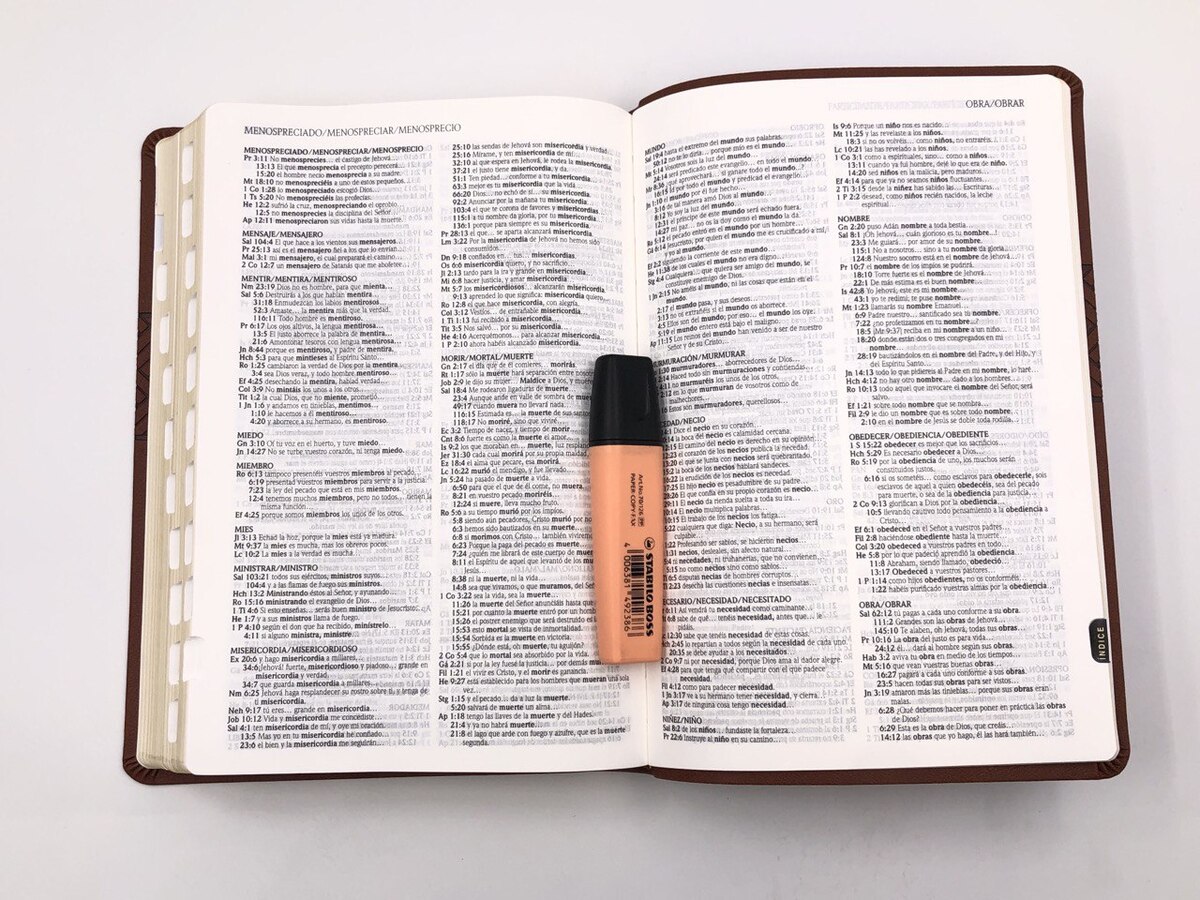 MENOSPRECIADO/MENOSPRECIAR/MENOSPRECIO
MENOSPRECIADO/MENOSPRECIAR/MENOSPRECIO
Pr 3:11 No menosprecies… el castigo de Jehová
13:13 El que menosprecia el precepto perecerá
15:20 el hombre necio menosprecia a su madre
Mt 18:10 no menospreciéis a uno de estos pequeños
1 Co 1:28 lo menospreciado escogió Dios
1 Ts 5:20 No menospreciéis las profecías
He 12:2 sufrió la cruz, menospreciando el oprobio
12:5 no menosprecies la disciplina del Señor
Ap 12:11 menospreciaron sus vidas hasta la muerte
MENSAJE/MENSAJERO
Sal 104:4 El que hace a los vientos sus mensajeros
Pr 25:13 así es el mensajero fiel a los que lo envían
Mal 3:1 mi mensajero, el cual preparará el camino
2 Co 12:7 un mensajero de Satanás que me abofetee
MENTIR/MENTIRA/MENTIROSO
Nm 23:19 Dios no es hombre, para que mienta
Sal 5:6 Destruirás a los que hablan mentira
31:18 Enmudezcan los labios mentirosos
52:3 Amaste… la mentira más que la verdad
116:11 Todo hombre es mentiroso
Pr 6:17 Los ojos altivos, la lengua mentirosa
13:5 El justo aborrece la palabra de mentira
21:6 Amontonar tesoros con lengua mentirosa
Jn 8:44 porque es mentiroso, y padre de mentira
Hch 5:3 para que mintieses al Espíritu Santo
Ro 1:25 cambiaron la verdad de Dios por la mentira
3:4 sea Dios veraz, y todo hombre mentiroso
Ef 4:25 desechando la mentira, hablad verdad
Col 3:9 No mintáis los unos a los otros
Tit 1:2 la cual Dios, que no miente, prometió
1 Jn 1:6 y andamos en tinieblas, mentimos
1:10 le hacemos a él mentiroso
4:20 y aborrece a su hermano, es mentiroso
MIEDO
Gn 3:10 Oí tu voz en el huerto, y tuve miedo
Jn 14:27 No se turbe vuestro corazón, ni tenga miedo
MIEMBRO
Ro 6:13 tampoco presentéis vuestros miembros al pecado
6:19 presentad vuestros miembros para servir a la justicia
7:23 la ley del pecado que está en mis miembros
12:4 tenemos muchos miembros, pero no todos… tienen la
misma función
Ef 4:25 porque somos miembros los unos de los otros
MIES
Jl 3:13 Echad la hoz, porque la mies está ya madura
Mt 9:37 la mies es mucha, mas los obreros pocos
Lc 10:2 La mies a la verdad es mucha
MINISTRAR/MINISTRO
Sal 103:21 todos sus ejércitos, ministros suyos
104:4 y a las flamas de fuego sus ministros
Hch 13:2 Ministrando éstos al Señor, y ayunando
Ro 15:16 ministrando el evangelio de Dios
1 Ti 4:6 Si esto enseñas… serás buen ministro de Jesucristo
He 1:7 y a sus ministros llama de fuego
1 P 4:10 según el don que ha recibido, minístrelo
4:11 si alguno ministra, ministre
MISERICORDIA/MISERICORDIOSO
Ex 20:6 y hago misericordia a millares
34:6 ¡Jehová! fuerte, misericordioso y piadoso… grande en
misericordia y verdad
34:7 que guarda misericordia a millares
Nm 6:25 Jehová haga resplandecer su rostro sobre ti, y tenga de
ti misericordia
Neh 9:17 tú eres… grande en misericordia
Job 10:12 Vida y misericordia me concediste
Sal 4:1 ten misericordia de mí, y oye mi oración
13:5 Mas yo en tu misericordia he confiado
23:6 el bien y la misericordia me seguirán
25:10 las sendas de Jehová son misericordia y verdad
25:16 Mírame, y ten misericordia de mí
32:10 al que espera en Jehová, le rodea la misericordia
37:21 el justo tiene misericordia, y da
51:1 Ten piedad… conforme a tu misericordia
63:3 mejor es tu misericordia que la vida
66:20 Dios… no echó de sí… su misericordia
92:2 Anunciar por la mañana tu misericordia
103:4 el que te corona de favores y misericordias
115:1 a tu nombre da gloria, por tu misericordia
136:1 porque para siempre es su misericordia
Pr 28:13 el que… se aparta alcanzará misericordia
Lm 3:22 Por la misericordia de Jehová no hemos sido
consumidos
Dn 9:18 confiados en… tus… misericordias
Os 6:6 misericordia quiero, y no sacrificio
Jl 2:13 tardo para la ira y grande en misericordia
Mi 6:8 hacer justicia, y amar misericordia
Mt 5:7 los misericordiosos… alcanzarán misericordia
9:13 aprended lo que significa: misericordia quiero
Ro 12:8 el que hace misericordia, con alegría
Col 3:12 Vestíos… de entrañable misericordia
1 Ti 1:13 fui recibido a misericordia
Tit 3:5 Nos salvó… por su misericordia
He 4:16 Acerquémonos… para alcanzar misericordia
1 P 2:10 ahora habéis alcanzado misericordia
MORIR/MORTAL/MUERTE
Gn 2:17 el día que de él comieres, morirás
Rt 1:17 sólo la muerte hará separación entre
Job 2:9 le dijo su mujer… Maldice a Dios, y
Sal 18:4 Me rodearon ligaduras de muerte
23:4 Aunque ande en valle de sombra de
49:17 cuando muera no llevará nada
116:15 Estimada es… la muerte de sus
118:17 No moriré, sino que viviré
Ec 3:2 Tiempo de nacer, y tiempo de morir
Cnt 8:6 fuerte es como la muerte el amor
Is 9:2 los que moraban en… muerte, luz
Jer 31:30 cada cual morirá por su propia
Ez 18:4 el alma que pecare, esa morirá
Lc 16:22 murió el mendigo, y fue llevado
Jn 5:24 ha pasado de muerte a vida
6:50 para que el que de él come, no muera
8:21 en vuestro pecado moriréis
12:24 si muere, lleva mucho fruto
Ro 5:6 a su tiempo murió por los impíos
5:8 siendo aún pecadores, Cristo murió por
6:3 hemos sido bautizados en su muerte
6:8 si morimos con Cristo… también
6:23 Porque la paga del pecado es muerte
7:24 ¿quién me librará de este cuerpo de
8:11 el Espíritu de aquel que levantó de los
Jesús
8:38 ni la muerte, ni la vida
14:8 sea que vivamos, o que muramos, del
1 Co 3:22 sea la vida, sea la muerte
11:26 la muerte del Señor anunciáis hasta
15:21 por cuanto la muerte entró por un
15:26 el postrer enemigo que será destruido
15:53 esto mortal se vista de inmortalidad
15:54 Sorbida es la muerte en victoria
15:55 ¿Dónde está, oh muerte, tu aguijón?
2 Co 5:4 que lo mortal sea absorbido por la vida
Gá 2:21 si por la ley fuese la justicia… por demás
Fil 1:21 el vivir es Cristo, y el morir es ganancia
He 9:27 está establecido para los hombres que mueran una sola
vez
Stg 1:15 y el pecado… da a luz la muerte
5:20 salvará de muerte un alma
Ap 1:18 tengo las llaves de la muerte y del Hades
21:4 y ya no habrá muerte
21:8 el lago que arde con fuego y azufre, que es la muerte
segunda
OBRA/OBRAR
MUNDO
Sal 19:4 hasta el extremo del mundo sus palabras
50:12 no te lo diría… porque mío es el mundo
Mt 5:14 Vosotros sois la luz del mundo
24:14 será predicado este evangelio… en todo el mundo
Mr 8:36 ¿qué aprovechará… si ganare todo el mundo
16:15 Id por todo el mundo y predicad el evangelio
Jn 1:10 el mundo por él fue hecho
3:16 de tal manera amó Dios al mundo
8:12 Yo soy la luz del mundo
12:31 el príncipe de este mundo será echado fuera
14:27 mi paz… no os la doy como el mundo la da
Ro 5:12 el pecado entró en el mundo por un hombre
Gá 6:14 Jesucristo, por quien el mundo me es crucificado a mí,
y yo al mundo
Ef 2:2 siguiendo la corriente de este mundo
He 11:38 de los cuales el mundo no era digno
Stg 4:4 Cualquiera… que quiera ser amigo del mundo, se
constituye enemigo de Dios
1 Jn 2:15 No améis al mundo, ni las cosas que están en el
mundo
2:17 el mundo pasa, y sus deseos
3:13 no os extrañéis si el mundo os aborrece
4:5 Ellos son del mundo; por eso… el mundo los oye
5:19 el mundo entero está bajo el maligno
Ap 11:15 Los reinos del mundo han venido a ser de nuestro
Señor y de su Cristo
MURMURAR
1:30 murmuradores… aborrecedores de Dios
2:14 Haced todo sin murmuraciones y contiendas
4:11 no murmuréis los unos de los otros
2:12 en lo que murmuran de vosotros como de
malhechores
16 Estos son murmuradores, querellosos
/NECIO
Dice el necio en su corazón
la boca del necio es calamidad cercana
El camino del necio es derecho en su opinión
el corazón de los necios publica la necedad
el que se junta con necios será quebrantado
la boca de los necios hablará sandeces
la erudición de los necios es necedad
El hijo necio es pesadumbre de su padre
El que confía en su propio corazón es necio
el necio da rienda suelta a toda su ira
el necio multiplica palabras
El trabajo de los necios los fatiga
cualquiera que diga: Necio, a su hermano, será
Profesando ser sabios, se hicieron necios
necios, desleales, sin afecto natural
ni necedades, ni truhanerías, que no convienen
no como necios sino como sabios
disputas necias de hombres corruptos
desecha las cuestiones necias e insensatas
/NECESIDAD/NECESITADO
Así vendrá tu necesidad como caminante
sabe de qué… tenéis necesidad, antes que
12:30 sabe que tenéis necesidad de estas cosas
2:45 lo repartían a todos según la necesidad de cada uno
20:35 se debe ayudar a los necesitados
Co 9:7 ni por necesidad, porque Dios ama al dador alegre
Ef 4:28 para que tenga qué compartir con el que padece
necesidad
Fil 4:12 como para padecer necesidad
1 Jn 3:17 ve a su hermano tener necesidad, y cierra
Ap 3:17 de ninguna cosa tengo necesidad
NIÑEZ/NIÑO
Sal 8:2 de los niños… fundaste la fortaleza
Pr 22:6 Instruye al niño en su camino
Is 9:6 Porque un niño nos es nacido
Mt 11:25 y las revelaste a los niños
18:3 si no os volvéis… como niños, no entraréis
Lc 10:21 las has revelado a los niños
1 Co 3:1 como a espirituales, sino… como a niños
13:11 cuando ya fui hombre, dejé lo que era de niño
14:20 sed niños en la malicia, pero maduros
Ef 4:14 para que ya no seamos niños fluctuantes
2 Ti 3:15 desde la niñez has sabido las… Escrituras
1 P 2:2 desead, como niños recién nacidos, la leche
espiritual
NOMBRE
Gn 2:20 puso Adán nombre a toda bestia
Sal 8:1 ¡Oh Jehová… cuán glorioso es tu nombre
23:3 Me guiará… por amor de su nombre
115:1 No a nosotros… sino a tu nombre da gloria
124:8 Nuestro socorro está en el nombre de Jehová
Pr 10:7 el nombre de los impíos se pudrirá
18:10 Torre fuerte es el nombre de Jehová
22:1 De más estima es el buen nombre
Is 42:8 Yo Jehová; este es mi nombre
43:1 yo te redimí; te puse nombre
Mt 1:23 llamarás su nombre Emanuel
6:9 Padre nuestro… santificado sea tu nombre
7:22 ¿no profetizamos en tu nombre
18:5 (Mr 9:37) reciba en mi nombre a un niño
18:20 donde están dos o tres congregados en mi
nombre
28:19 bautizándolos en el nombre del Padre, y del Hijo, y
del Espíritu Santo
Jn 14:13 todo lo que pidiereis al Padre en mi nombre, lo haré
Hch 4:12 no hay otro nombre… dado a los hombres
Ro 10:13 todo aquel que invocare el nombre del Señor, será
salvo
Ef 1:21 sobre todo nombre que se nombra
Fil 2:9 le dio un nombre que es sobre todo nombre
2:10 en el nombre de Jesús se doble toda rodilla
OBEDECER/OBEDIENCIA/OBEDIENTE
1 S 15:22 obedecer es mejor que los sacrificios
Hch 5:29 Es necesario obedecer a Dios
Ro 5:19 por la obediencia de uno, los muchos serán
constituidos justos
6:16 si os sometéis… como esclavos para obedecerle, sois
esclavos de aquel a quien obedecéis, sea del pecado
para muerte, o sea de la obediencia para justicia
2 Co 9:13 glorifican a Dios por la obediencia
10:5 llevando cautivo todo pensamiento a la obediencia a
Cristo
Ef 6:1 obedeced en el Señor a vuestros padres
Fil 2:8 haciéndose obediente hasta la muerte
Col 3:20 obedeced a vuestros padres en todo
He 5:8 por lo que padeció aprendió la obediencia
11:8 Abraham, siendo llamado, obedeció
13:17 Obedeced a vuestros pastores
1 P 1:14 como hijos obedientes, no os conforméis
1:22 habéis purificado vuestras almas por la obediencia
OBRA/OBRAR
Sal 62:12 tú pagas a cada uno conforme a su obra
111:2 Grandes son las obras de Jehová
145:10 Te alaben, oh Jehová, todas tus obras
Pr 10:16 La obra del justo es para vida
24:12 él… dará al hombre según sus obras
Hab 3:2 aviva tu obra en medio de los tiempos
Mt 5:16 que vean vuestras buenas obras
16:27 pagará a cada uno conforme a sus obras
23:5 hacen todas sus obras para ser vistos
Jn 3:19 amaron más las tinieblas… porque sus obras eran
malas
6:28 ¿Qué debemos hacer para poner en práctica las obras
de Dios?
6:29 Esta es la obra de Dios, que creáis
14:12 las obras que yo hago, él las hará también
ÍNDICE
Art.-No. 70/126
PAPER-COPY-FAX
STABILO BOSS
4 006381 492386